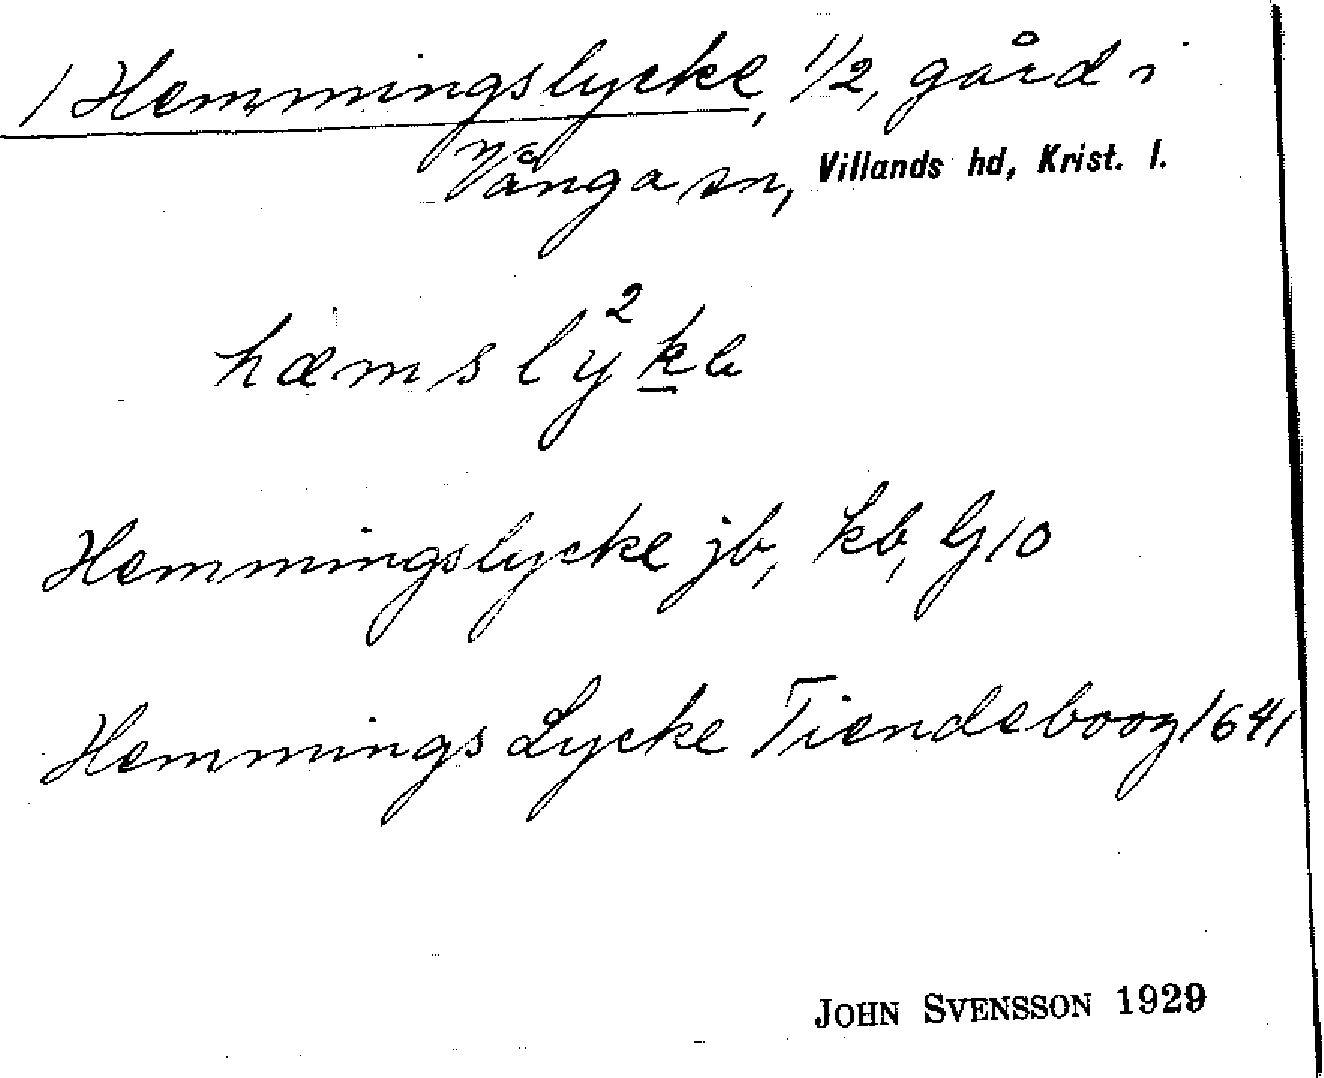 1 Hemmingslycke, 1/2, gård i
Vånga sn, Villands hd, Krist. l.
hæmsly²kɐ
Hemmingslycke jb, kb, G10
Hemmings Lycke Tiendeboog 1641
JOHN SVENSSON 1929